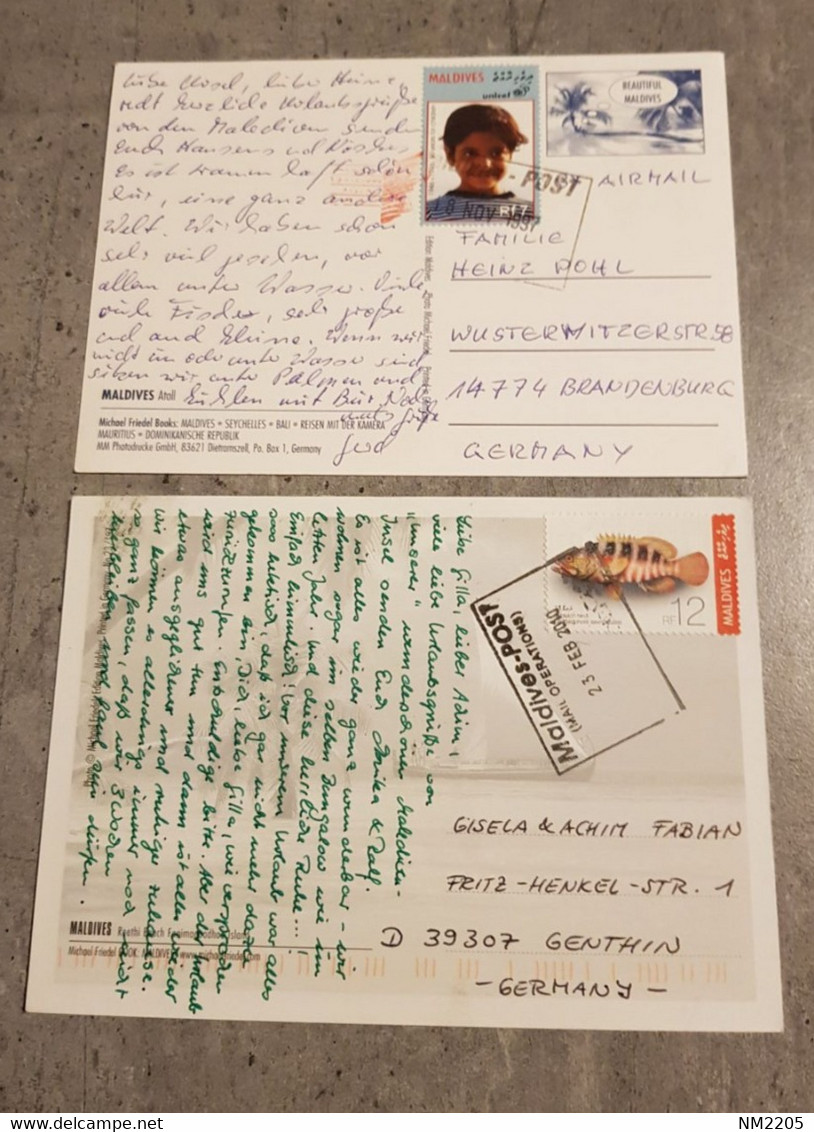 Liebe Ursel, lieber Heinz,
recht herzliche Urlaubsgrüße
von den Malediven senden
Euch Hansens und
Es ist traumhaft schön
hier, eine ganz andere
Welt. Wir haben schon
sehr viel gesehen, vor
allem unter Wasser. Viele
viele Fische, sehr große
und auch kleine. Wenn wir
nicht im oder unter Wasser sind
sitzen wir unter Palmen und
mit Bier
Gerd
MALDIVES Atoll
Michael Friedel Books: MALDIVES • SEYCHELLES • BALI • REISEN MIT DER KAMERA
MAURITIUS • DOMINIKANISCHE REPUBLIK
MM Photodrucke GmbH, 83623 Dietramszell, Po. Box 1, Germany
MALDIVES
unicef
BEAUTIFUL
MALDIVES
POST
8 NOV 1997
AIRMAIL
FAMILIE
HEINZ POHL
WUSTERMITZERSTR. 58
14774 BRANDENBURG
GERMANY
Liebe Gilla, lieber Achim,
viele liebe Urlaubsgrüße von
"unserer" wunderschönen Malediven-
Insel senden Euch Annika & Ralf.
Es ist alles wieder ganz wunderbar - wir
wohnen sogar im selben Bungalow wie im
letzten Jahr. Und diese herrliche Ruhe...!
Einfach himmlisch! Vor unserem Urlaub war alles
sooo hektisch, daß ich gar nicht mehr dazu
gekommen bin, Dich, liebe Gilla, wie versprochen
zurückzurufen. Entschuldige bitte. Aber der Urlaub
wird uns gut tun und dann ist alles wieder
etwas ausgeglichener und ruhiger zuhause.
Wir können es allerdings immer noch nicht
so ganz fassen, daß wir 3 Wochen
hierbleiben und faul sein dürfen.
MALDIVES
RF 12
Maldives-POST
(MAIL OPERATIONS)
23 FEB 2010
GISELA & ACHIM FABIAN
FRITZ-HENKEL-STR. 1
D 39307 GENTHIN
-GERMANY-
MALDIVES Reethi Beach
Michael Friedel BOOK: MALDIVES
NM2205